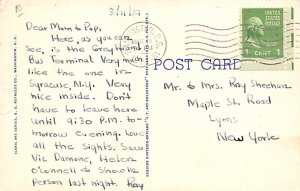 3/11/51
Dear Mom & Pop,
Here, as you can
see, is the Greyhound
Bus Terminal. Very much
like the one in
Syracuse, N.Y. Very
nice inside. Don't
have to leave here
until 9:30 P.M. to-
morrow evening. Love
all the sights. Saw
Vic Damone, Helen
O'Connell &
person last night. Ray
POST CARD
1 CENT 1
Mr. & Mrs. Ray
Maple St. Road
Lyons
New York